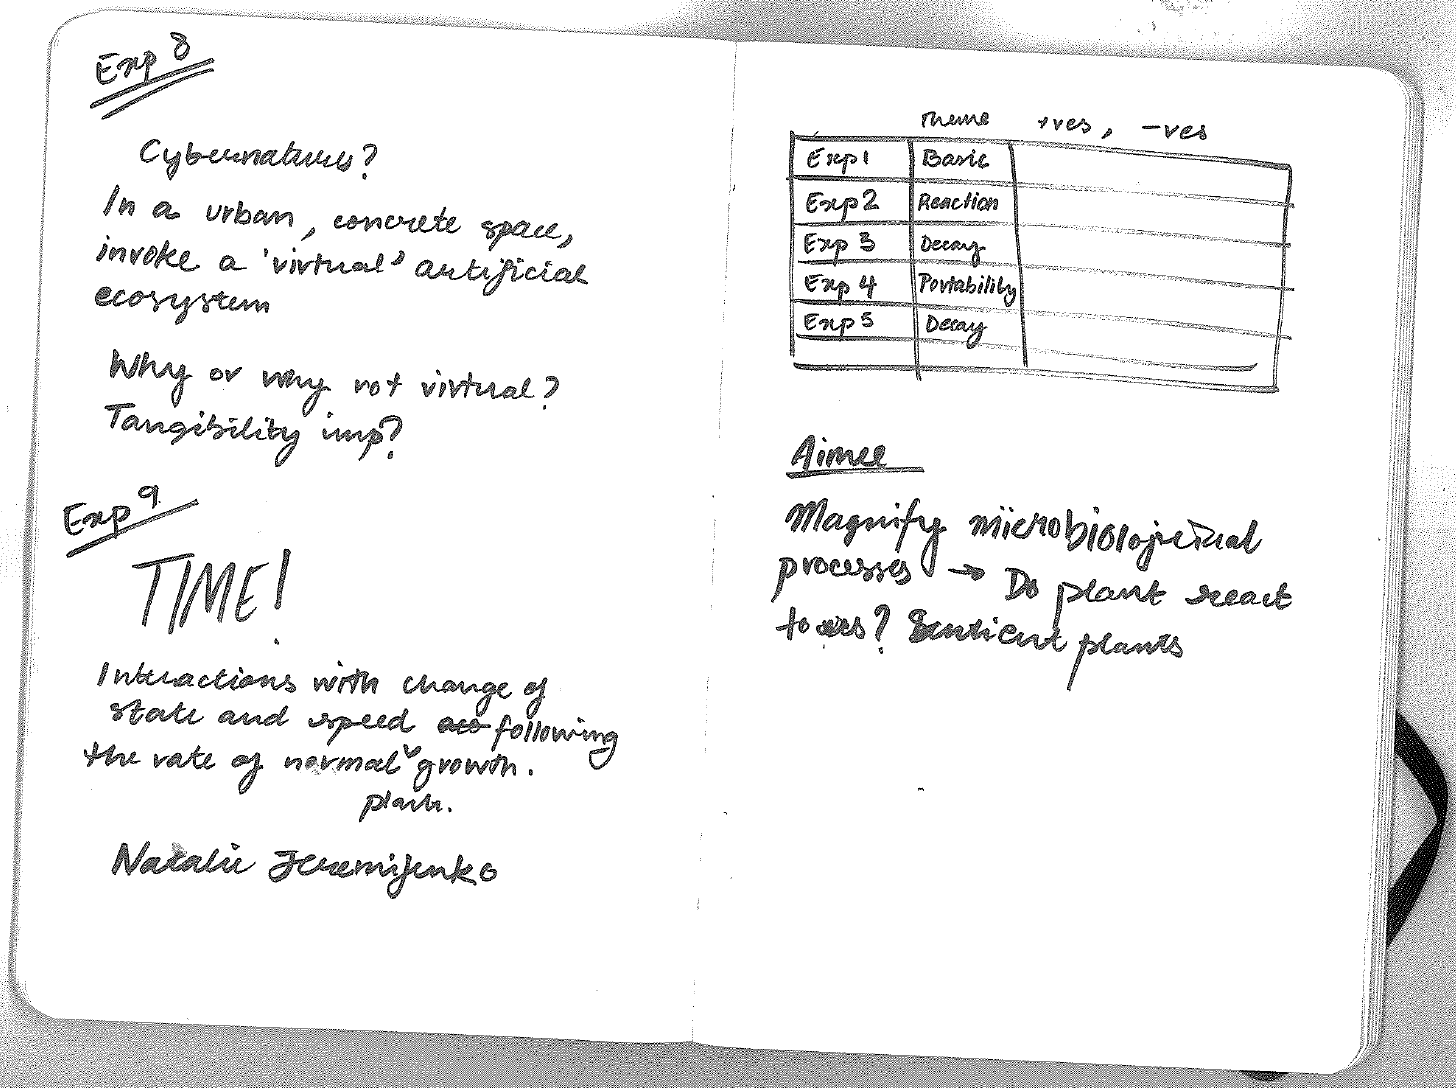 Exp 8
Cybernatures?
In a urban, concrete space,
invoke a 'virtual' artificial
ecosystem
Why or why not virtual?
Tangibility imp?
Exp 9
TIME!
Interactions with change of
state and speed following
the rate of normal ˅ growth.
plant.
Natalie Jeremijenko
Theme +ves, -ves
Exp 1 Basic
Exp 2 Reaction
Exp 3 Decay
Exp 4 Portability
Exp 5 Decay
Aimee
Magnify microbiological
processes → Do plant react
to us? Sentient plants